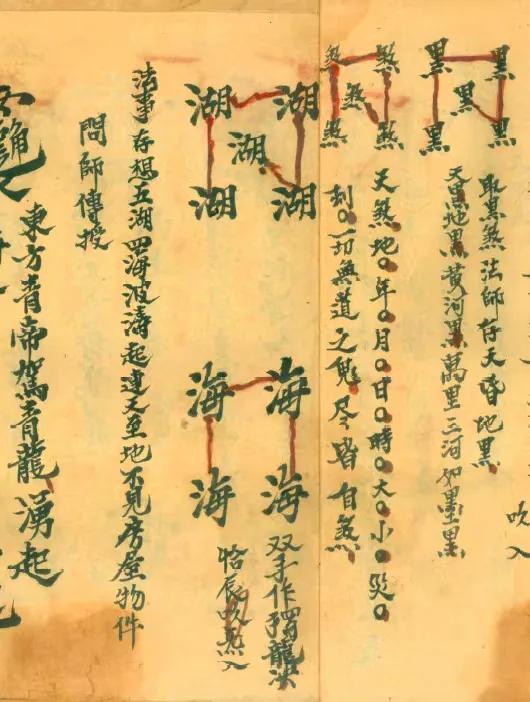 吹入
黑 黑
黑
黑 黑
取黑煞法師存天昏地黑
天黑地黑黃河黑萬里三河如墨黑
煞 煞
煞
煞 煞
天煞地〇年〇月〇日〇時〇大〇小〇災〇
刻〇一切無道之鬼尽皆自煞
湖 湖
湖
湖 湖
海 海
海 海
双手作龍決
辰吹炁入
法事存想五湖四海波濤起連天至地不見房屋物件
問師傳授
東方青帝駕青龍湧起